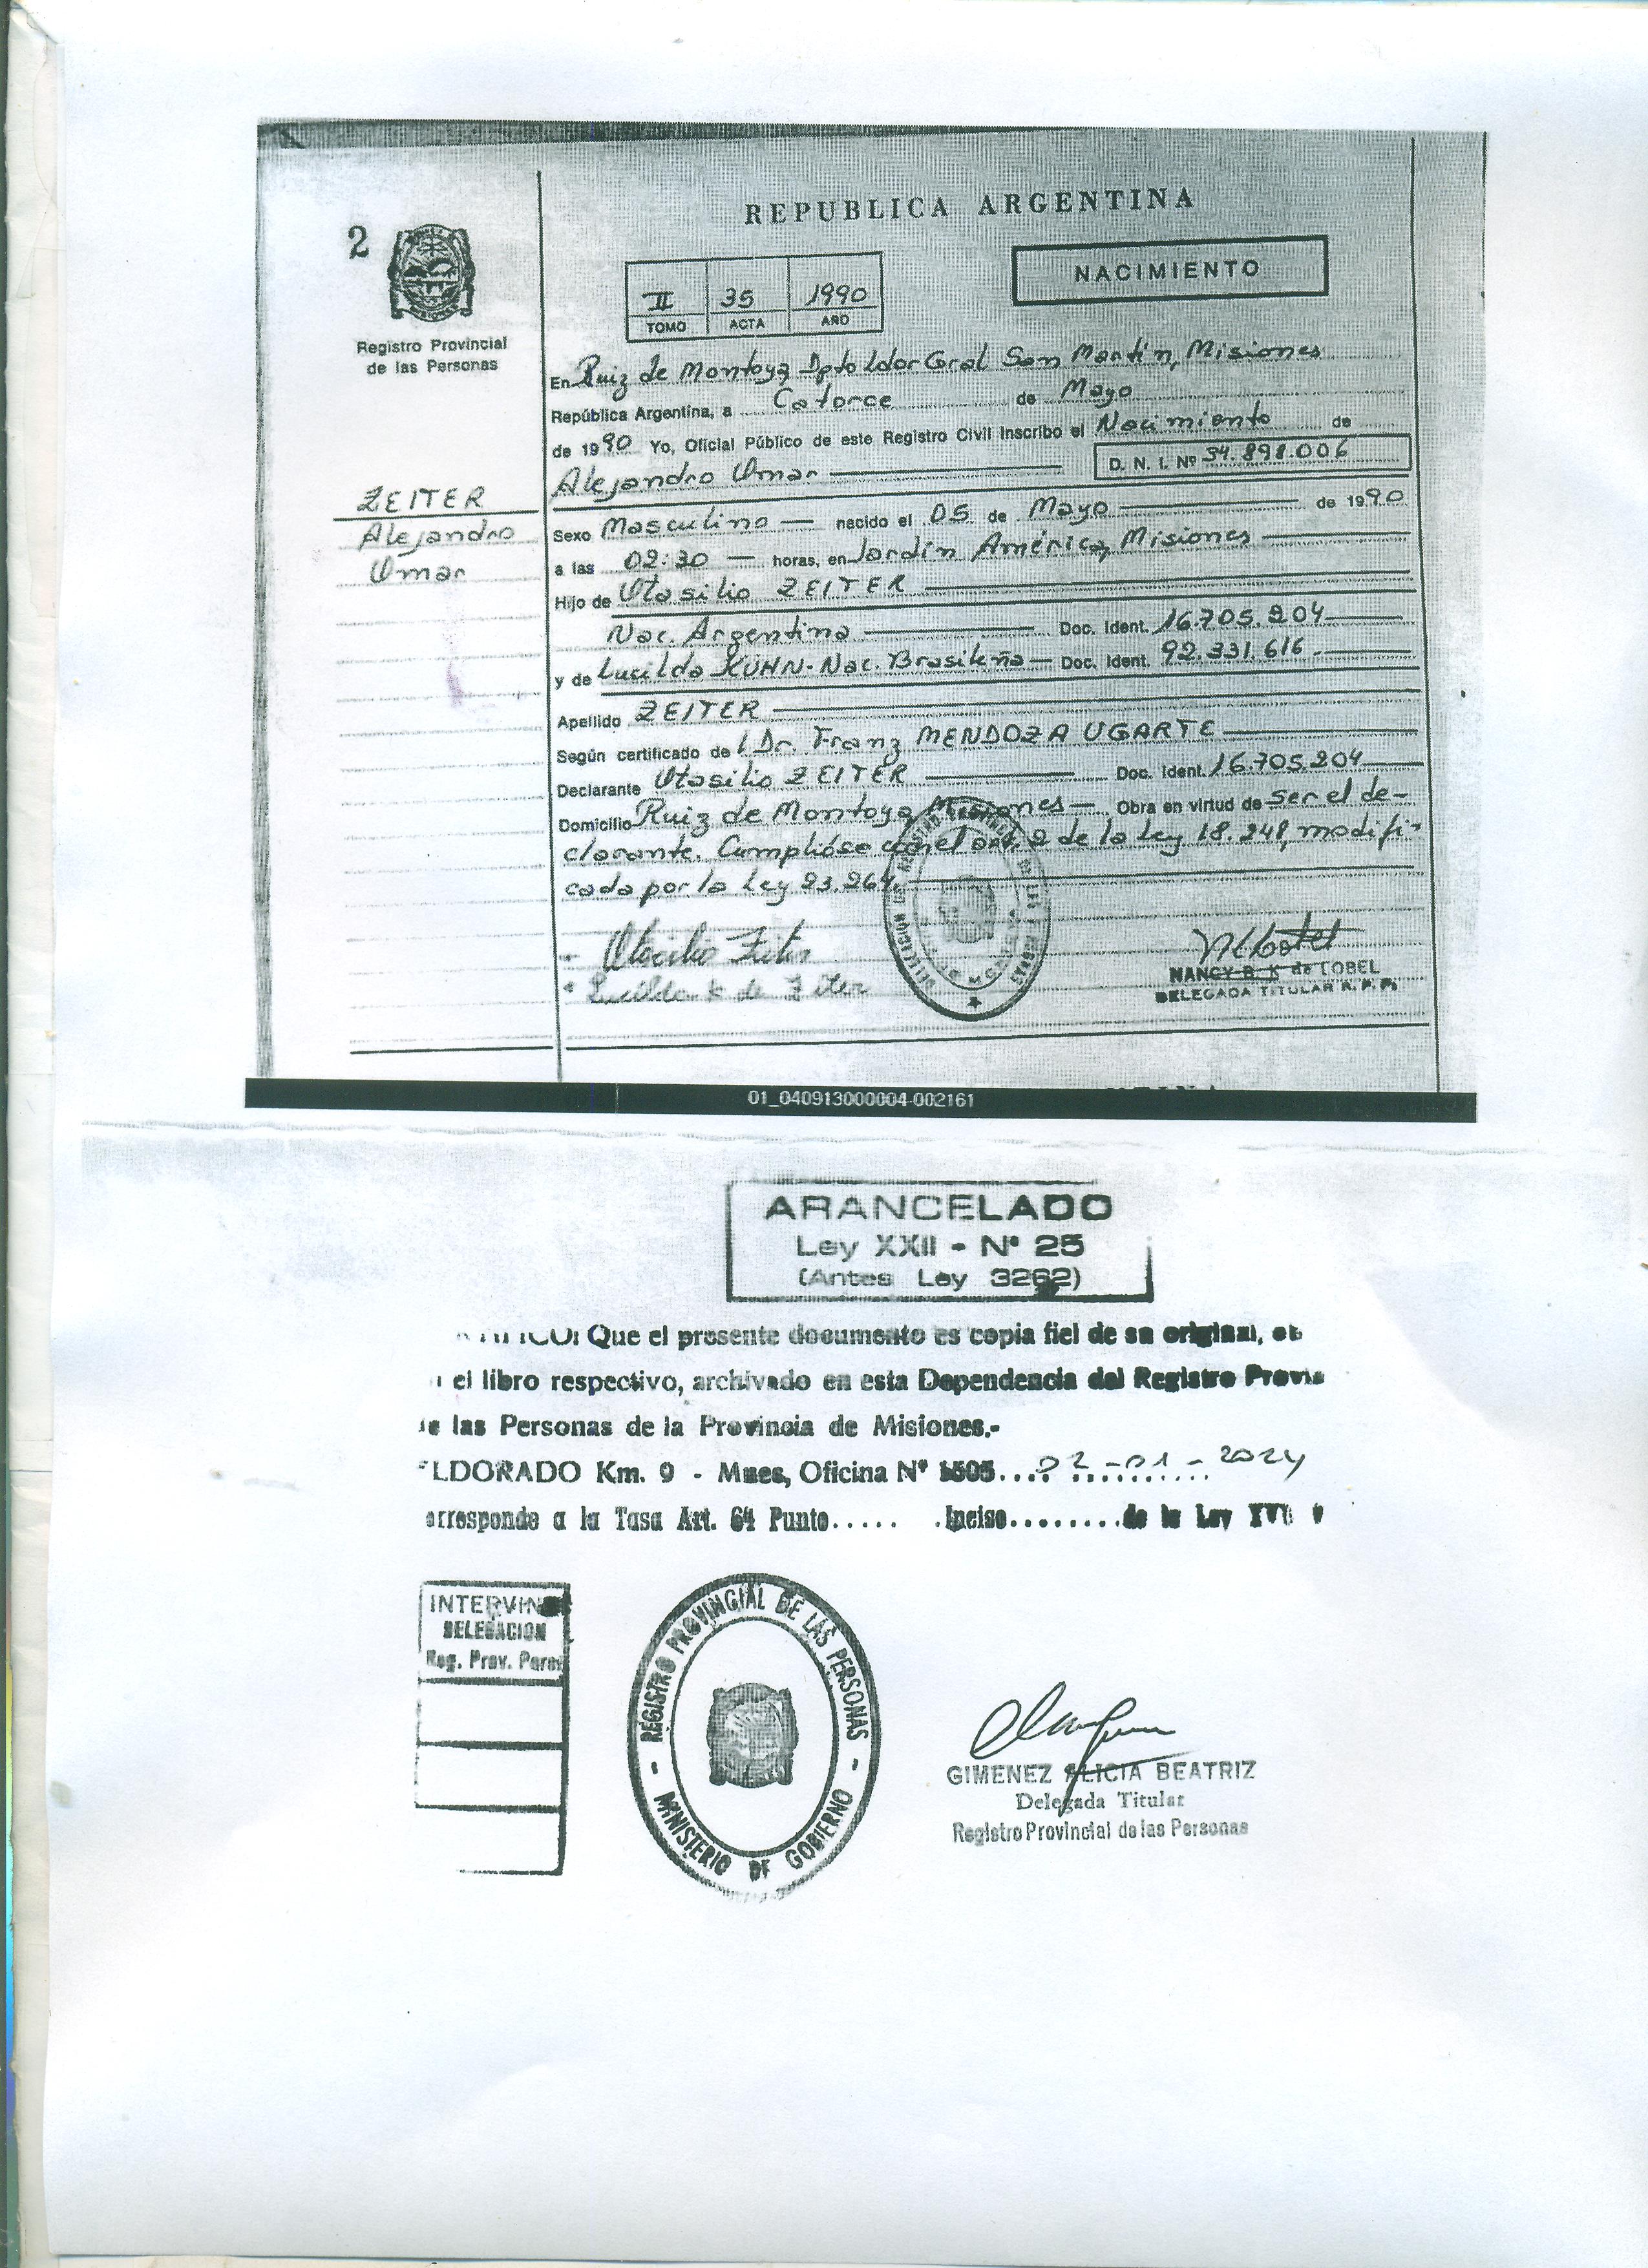 REPUBLICA ARGENTINA
2
NACIMIENTO
II 35 1990
TOMO ACTA AÑO
Registro Provincial
de las Personas
En Ruiz de Montoya, Dpto Ldor Gral San Martín, Misiones
República Argentina, a Catorce de Mayo
de 1990 Yo, Oficial Público de este Registro Civil Inscribo el Nacimiento de
Alejandro Omar D. N. I. Nº 34.898.006
ZEITER
Alejandro
Omar
Sexo Masculino nacido el 05 de Mayo de 1990
a las 02:30 horas, en Jardín América, Misiones
Hijo de Otasilio ZEITER
Nac. Argentina Doc. Ident. 16.705.204
y de Lucilda KÜHN - Nac. Brasileña Doc. Ident. 92.331.616
Apellido ZEITER
Según certificado de l Dr. Franz MENDOZA UGARTE
Declarante Otasilio ZEITER Doc. Ident. 16.705.204
Domicilio Ruiz de Montoya, Misiones Obra en virtud de ser el de-
clarante. Cumplióse con el art. 2 de la Ley 18.248, modifi-
cada por la Ley 23.264.
Lucilda K de Zeiter
NANCY B. K de LOBEL
DELEGADA TITULAR R. P. P.
01_040913000004-002161
ARANCELADO
Ley XXII - Nº 25
(Antes Ley 3262)
Que el presente documento es copia fiel de su original,
el libro respectivo, archivado en esta Dependencia del Registro Provin
de las Personas de la Provincia de Misiones.-
ELDORADO Km. 9 - Mnes, Oficina Nº 02-01-2024
orresponde a la Tasa Art. 64 Punto..... Inciso........ de la Ley
INTERVINO
DELEGACION
Reg. Prov. Pers
REGISTRO PROVINCIAL DE LAS PERSONAS
- MINISTERIO DE GOBIERNO -
GIMENEZ ALICIA BEATRIZ
Delegada Titular
Registro Provincial de las Personas